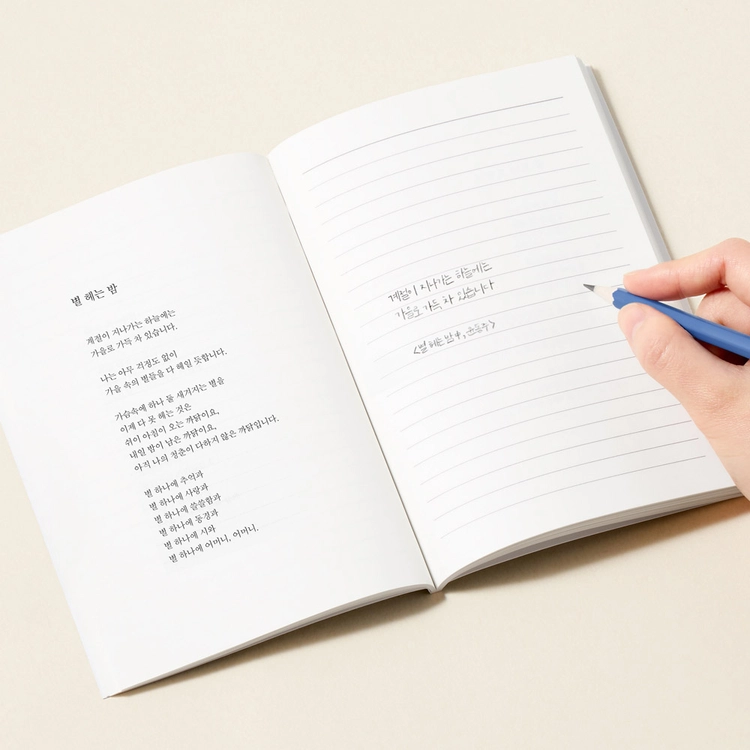 별 헤는 밤
계절이 지나가는 하늘에는
가을로 가득 차 있습니다.
나는 아무 걱정도 없이
가을 속의 별들을 다 헤일 듯합니다.
가슴속에 하나 둘 새겨지는 별을
이제 다 못 헤는 것은
쉬이 아침이 오는 까닭이요,
내일 밤이 남은 까닭이요,
아직 나의 청춘이 다하지 않은 까닭입니다.
별 하나에 추억과
별 하나에 사랑과
별 하나에 쓸쓸함과
별 하나에 동경과
별 하나에 시와
별 하나에 어머니, 어머니.
계절이 지나가는 하늘에는
가을로 가득 차 있습니다
<별 헤는 밤, 윤동주>